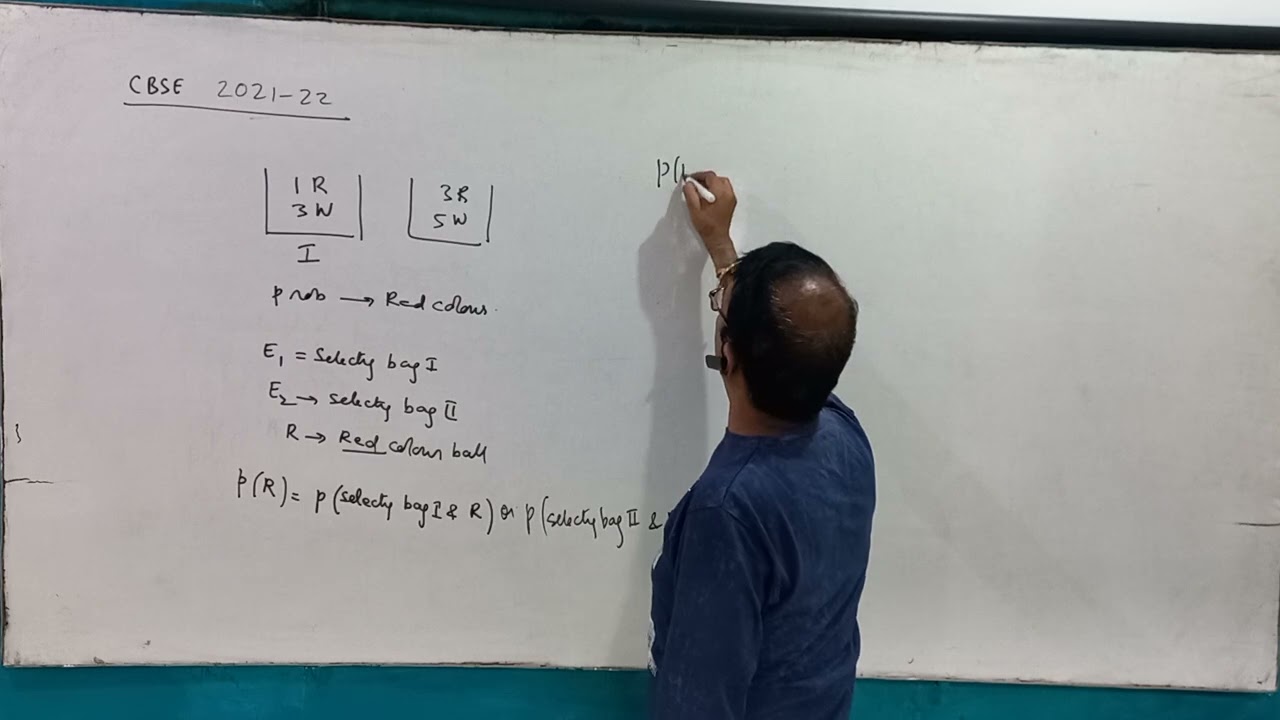 CBSE 2021-22
1 R
3 W
I
3R
5 W
prob → Red colour.
E₁ = Selectg bag I
E₂ → selectg bag II
R → Red colour ball
P(R) = P(selectg bag I & R) or P(selectg bag II &
P(